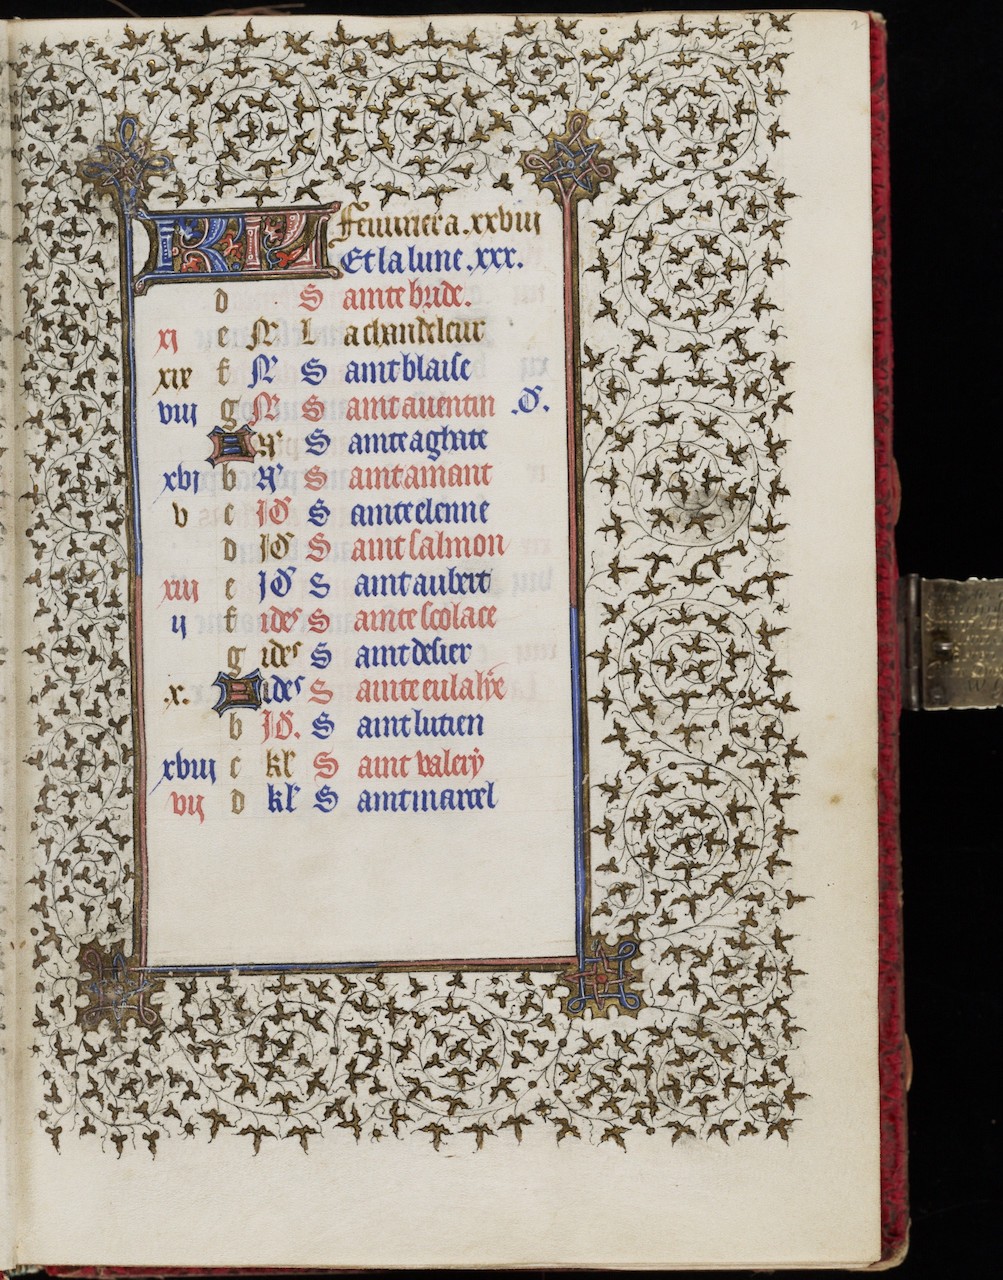 2
KL Feurier a .xxviii
Et la lune .xxx.
d Sainte bride.
xi e N La chandeleur
xix f N Saint blaise
viii g N Saint auentin .D.
A N Sainte aghate
xvi b N Saint amant
v c ID Sainte elenne
d ID Saint salmon
xiii e ID Saint aubert
ii f ides Sainte scolace
g ides Saint desier
.x. A ides Sainte eulalye
b ID. Saint lucien
xviii c kl Saint valery
vii d kl Saint marcel